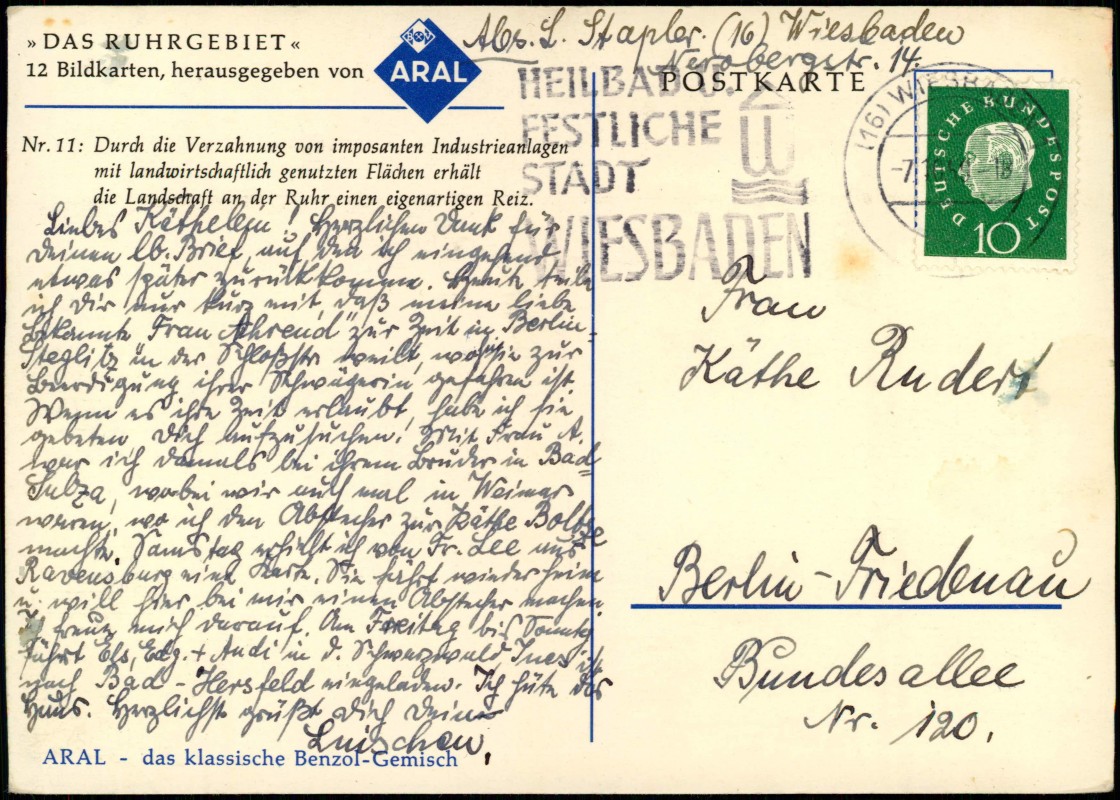 »DAS RUHRGEBIET«
12 Bildkarten, herausgegeben von
ARAL
Abs. L. Stapler. (16) Wiesbaden
Nerobergstr. 14.
POSTKARTE
HEILBAD U.
FESTLICHE
STADT
WIESBADEN
(16) WIESBADEN
DEUTSCHE BUNDESPOST
10
Nr. 11: Durch die Verzahnung von imposanten Industrieanlagen
mit landwirtschaftlich genutzten Flächen erhält
die Landschaft an der Ruhr einen eigenartigen Reiz.
Liebes Käthelein! Herzlichen Dank für
Deinen lb. Brief, auf den ich eingehend
etwas später zurückkomme. Heute teile
ich Dir nur kurz mit, daß meine liebe
Bekannte Frau Ahrend" zur Zeit in Berlin-
Steglitz in der Schloßstr. weilt, wo sie zur
Beerdigung ihrer Schwägerin gefahren ist
Wenn es ihre Zeit erlaubt, habe ich sie
gebeten, Dich aufzusuchen! Mit Frau A.
war ich damals bei ihrem Bruder in Bad
Sulza, wobei wir auch mal in Weimar
waren, wo ich den Abstecher zur Käthe
machte. Samstag erhielt ich von Fr. Lee aus
Ravensburg eine Karte. Sie fährt wieder heim
u. will hier bei mir einen Abstecher machen.
freue mich darauf. Am Freitag bis Sonntag
fährt Els, Edg. + Andi in d. Schwarzwald, Ines ist
nach Bad-Hersfeld eingeladen. Ich hüte das
Haus. Herzlichst grüßt Dich Deine
Luischen.
ARAL - das klassische Benzol-Gemisch
Frau
Käthe Rudert
Berlin-Friedenau
Bundesallee
Nr. 120.